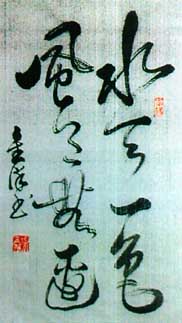 水天一色
風月無邊